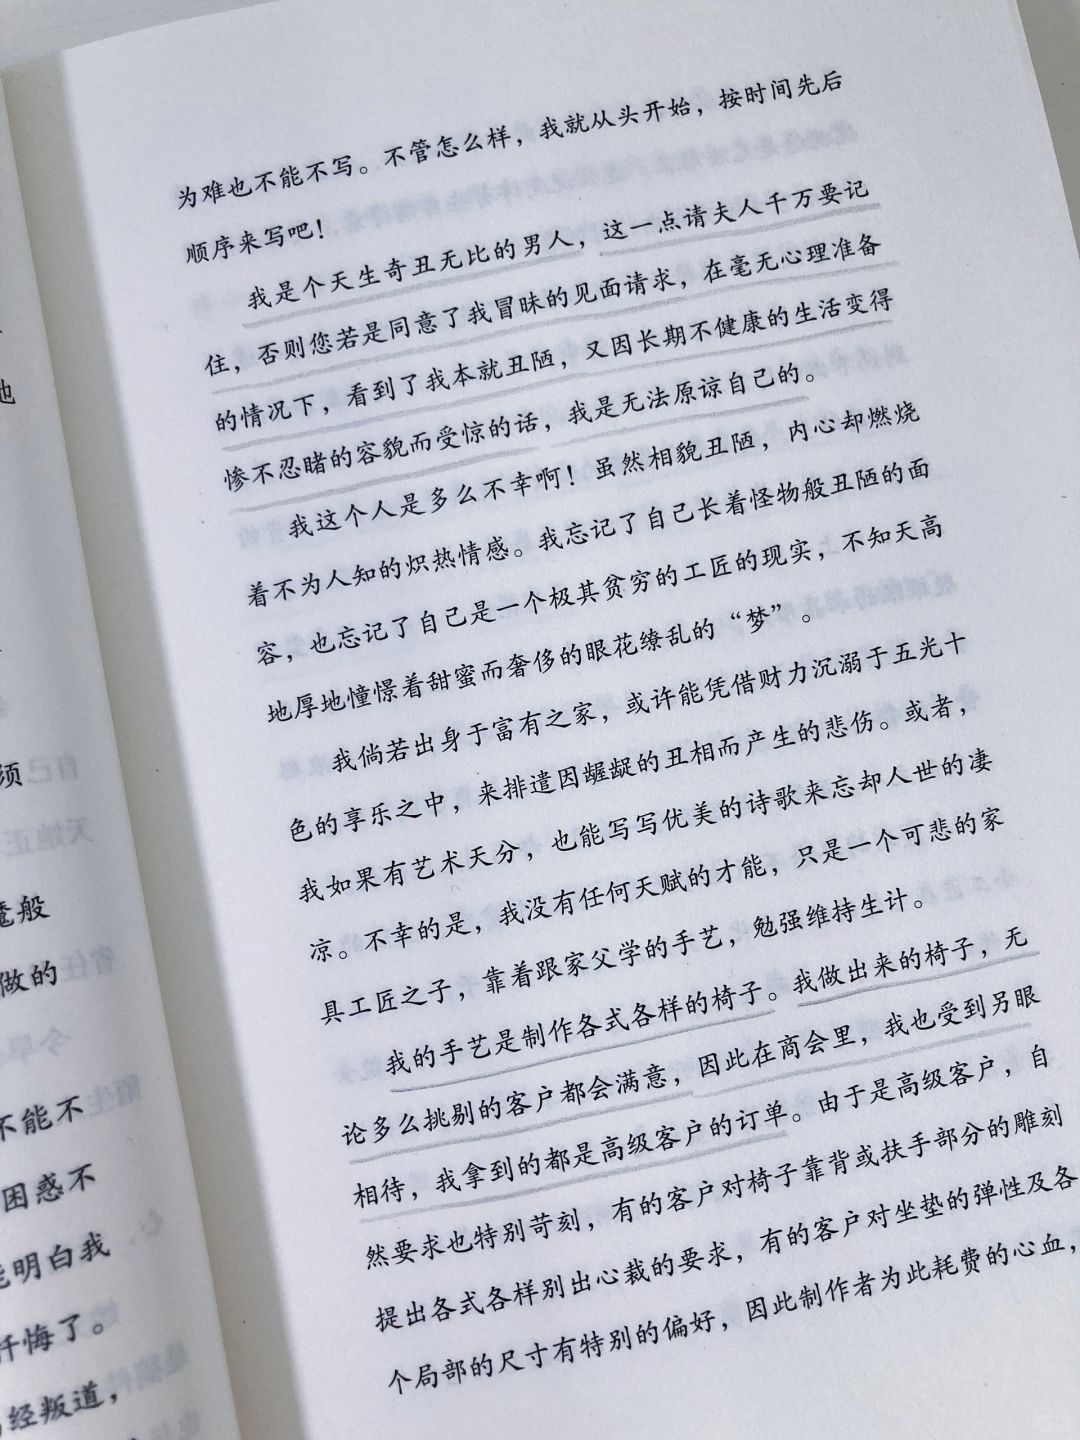 为难也不能不写。不管怎么样，我就从头开始，按时间先后
顺序来写吧！
我是个天生奇丑无比的男人，这一点请夫人千万要记
住，否则您若是同意了我冒昧的见面请求，在毫无心理准备
的情况下，看到了我本就丑陋，又因长期不健康的生活变得
惨不忍睹的容貌而受惊的话，我是无法原谅自己的。
我这个人是多么不幸啊！虽然相貌丑陋，内心却燃烧
着不为人知的炽热情感。我忘记了自己长着怪物般丑陋的面
容，也忘记了自己是一个极其贫穷的工匠的现实，不知天高
地厚地憧憬着甜蜜而奢侈的眼花缭乱的“梦”。
我倘若出身于富有之家，或许能凭借财力沉溺于五光十
色的享乐之中，来排遣因龌龊的丑相而产生的悲伤。或者，
我如果有艺术天分，也能写写优美的诗歌来忘却人世的凄
凉。不幸的是，我没有任何天赋的才能，只是一个可悲的家
具工匠之子，靠着跟家父学的手艺，勉强维持生计。
我的手艺是制作各式各样的椅子。我做出来的椅子，无
论多么挑剔的客户都会满意，因此在商会里，我也受到另眼
相待，我拿到的都是高级客户的订单。由于是高级客户，自
然要求也特别苛刻，有的客户对椅子靠背或扶手部分的雕刻
提出各式各样别出心裁的要求，有的客户对坐垫的弹性及各
个局部的尺寸有特别的偏好，因此制作者为此耗费的心血，
地
须
魔般
做的
不能不
困惑不
能明白我
忏悔了。
经叛道，